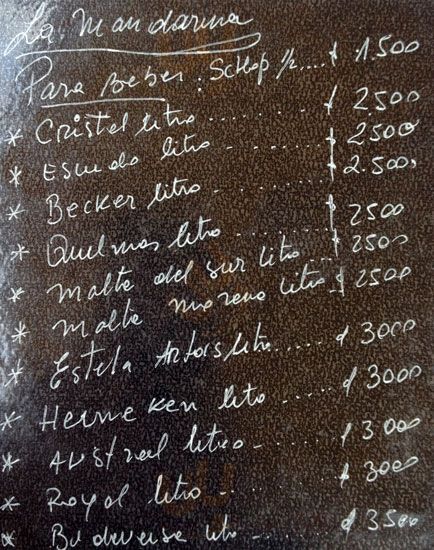 La Mandarina
Para Beber : Schop 1/2.... $ 1.500
* Cristal litro........ $ 2.500
* Escudo litro - ........ $ 2500
* Becker litro - ........ $ 2.500.
* Quilmas litro ........ $ 2500
* Malta del sur litro .... $ 2500
* Malta morena litro.. $ 2500
* Estela Artois litro..... $ 3000
* Heineken litro - ..... $ 3000
* Austral litro - ...... $ 3000
* Royal litro - ........ $ 3000
* Budweise litro - ...... $ 3500